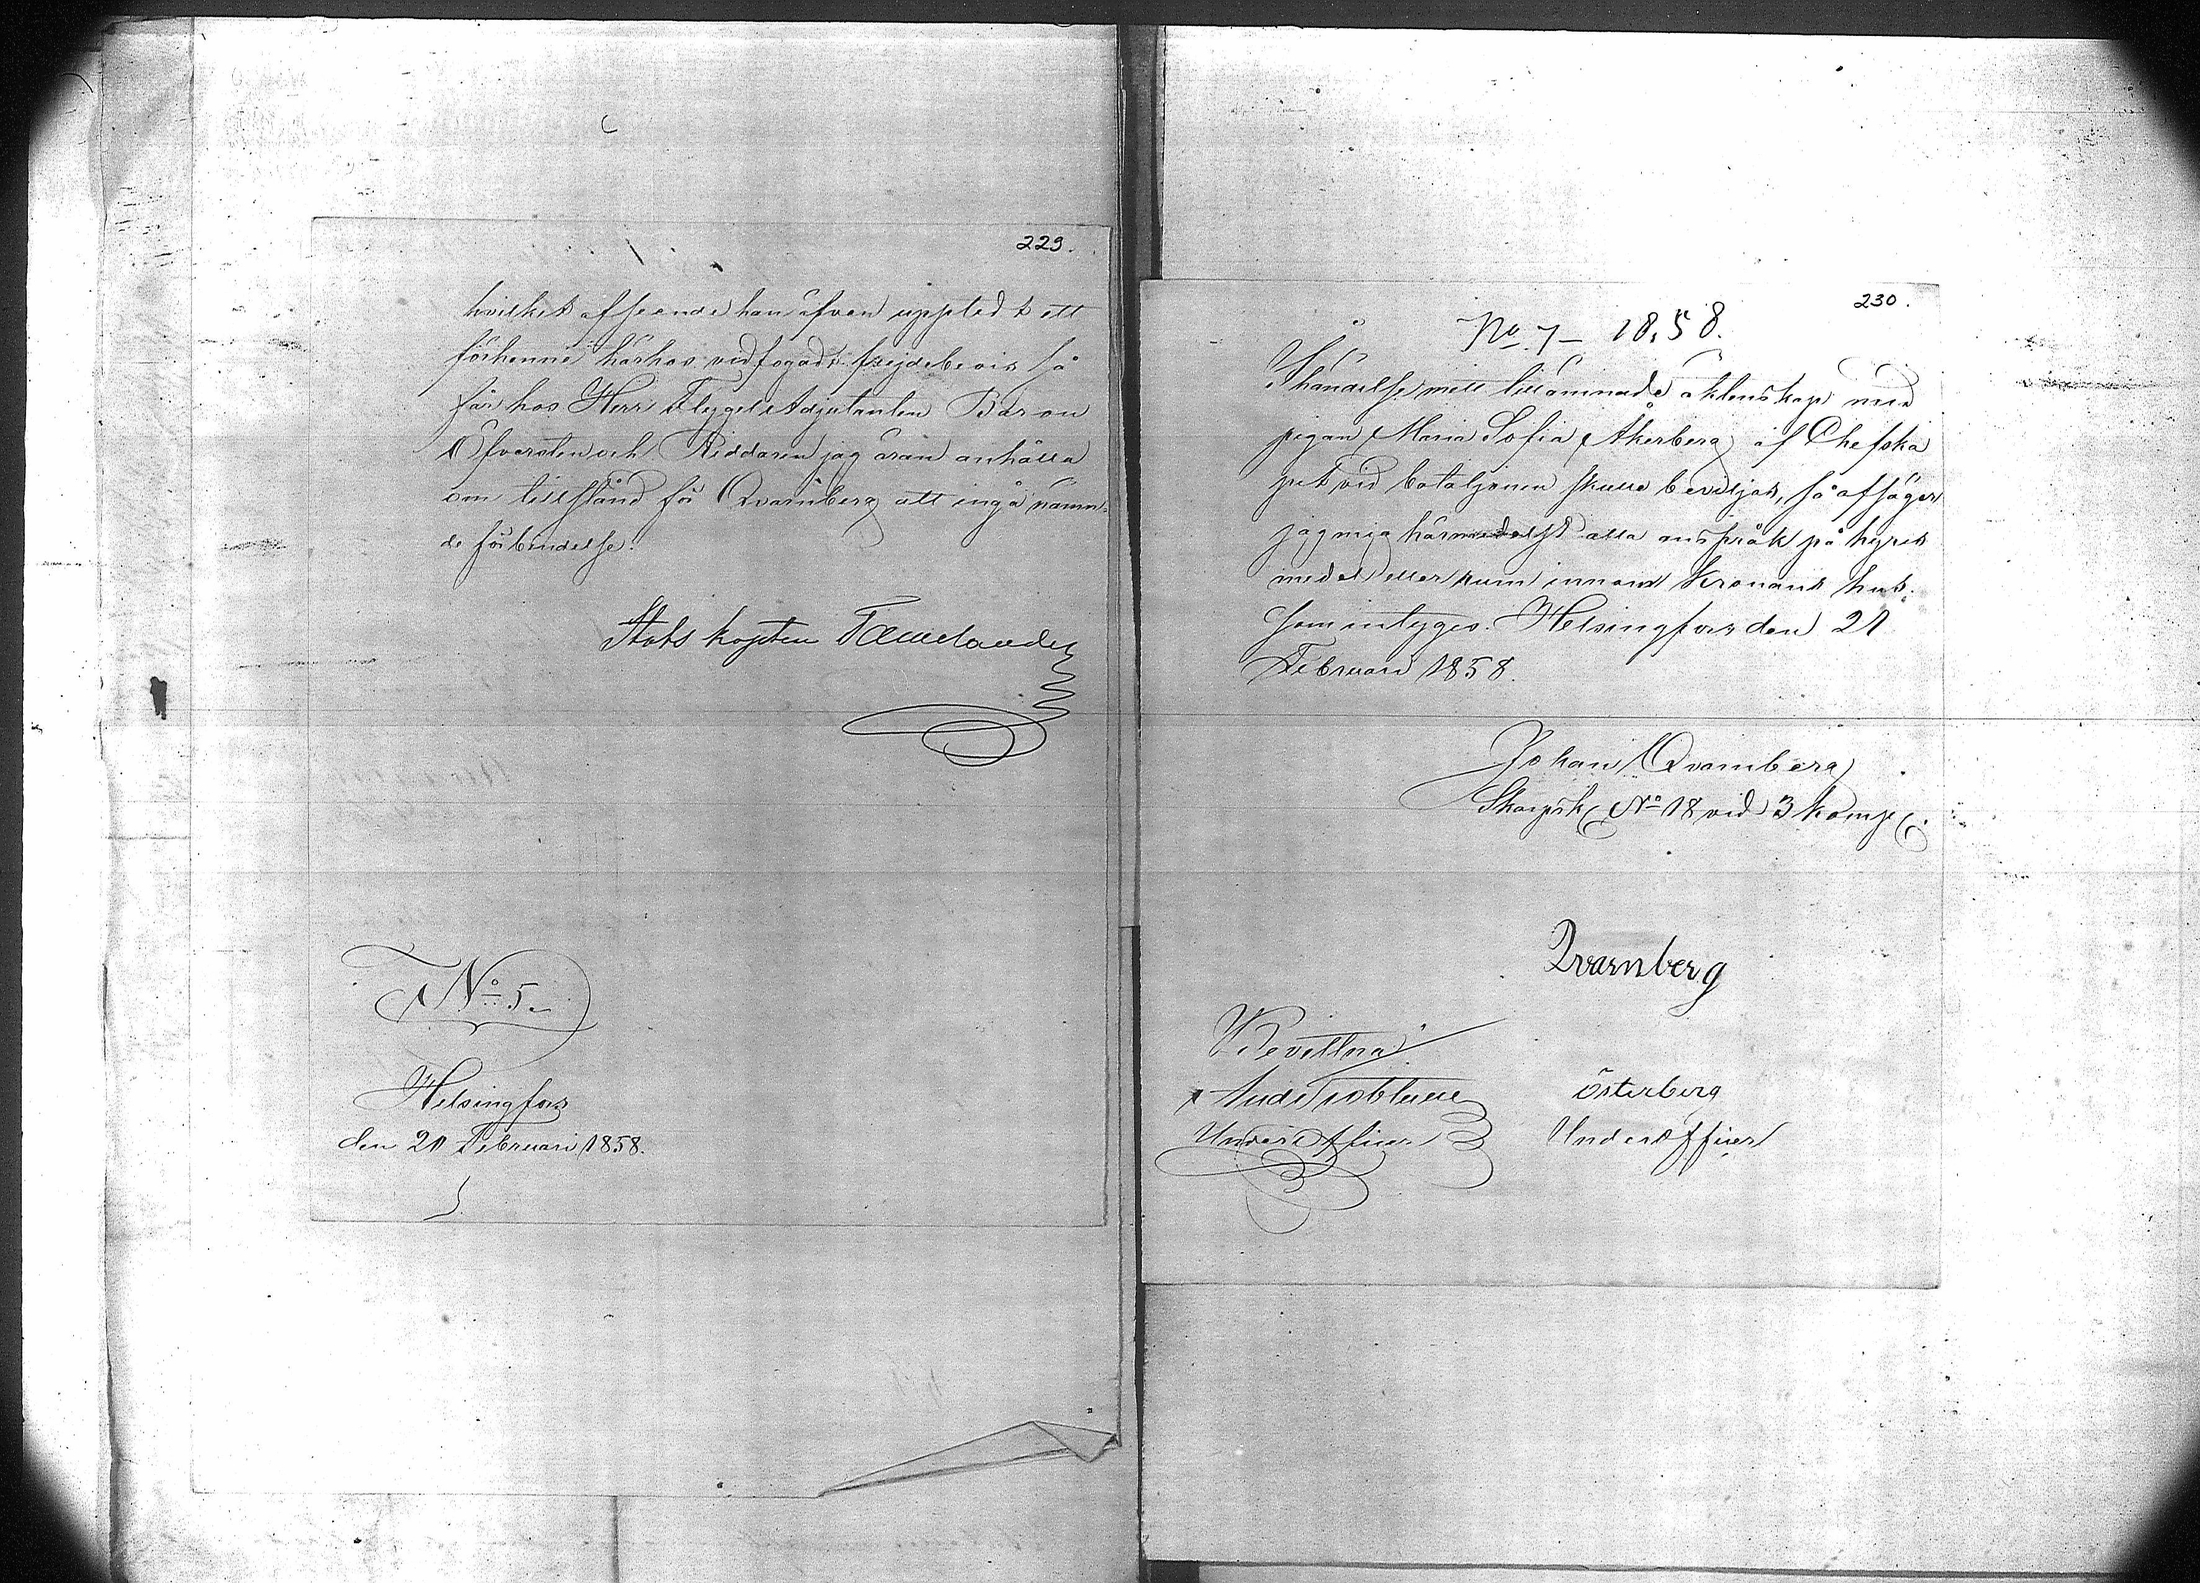 229.
hvilket afseende han äfven uppted t ett
för henne härhos vidfogadt frejdebevis så
får hos Herr Flygel Adjutanten Baron
Öfversten och Riddaren jag äran anhålla
om tillstånd för Qvarnberg att ingå nämn-
de förbindelse.
Stabs kapten
No 5
Helsingfors
den 21 Februari 1858.
230.
No 7 — 1858.
I händelse mitt tillämnade äktenskap med
pigan Maria Sofia Åkerberg af Chefska
pet vid bataljonen skulle beviljas, så afsäger
jag mig härmedelst alla anspråk på hyres
medel eller rum innom Kronans hus.
som intygas. Helsingfors den 21
Februari 1858.
Johan Qvarnberg
Skarpsk No 18 vid 3 Komp
Qvarnberg
Bevittna
Österberg
Underofficer Underofficer